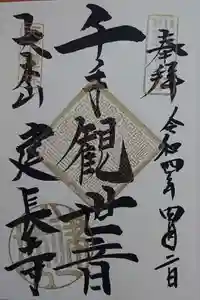 奉拝
令和四年四月二日
千手観世音
巨福山
建長寺